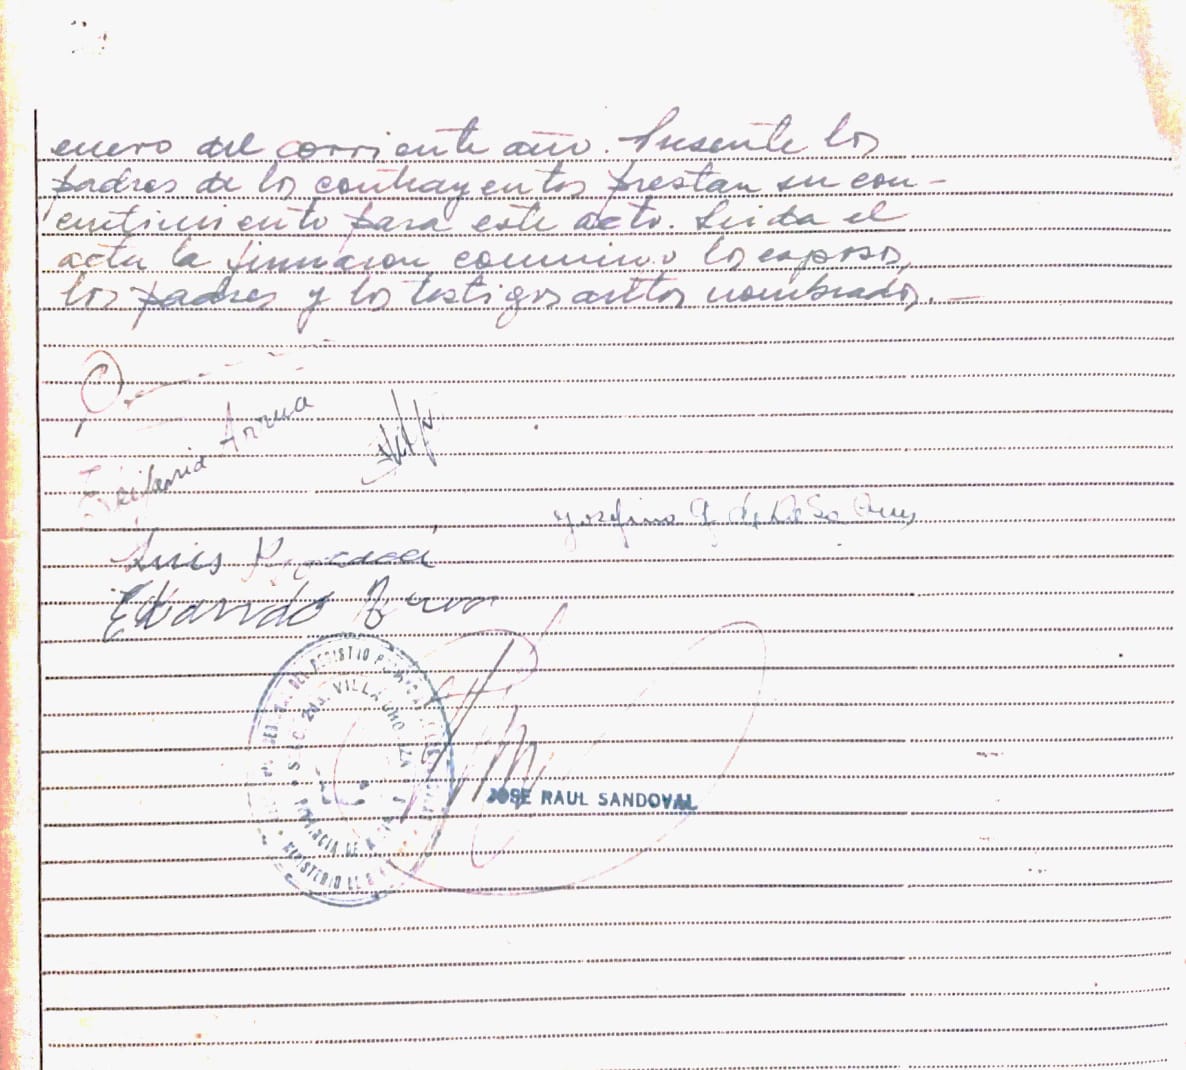 enero del corriente año. Presente los
padres de los contrayentes prestan su con-
centimiento para este acto. Leida el
acta la firmaron conmigo los esposos,
los padres y los testigos antes nombrados. —
Epifania Arrua
Josefina G. de
Luis
Eduardo
DEL REGISTRO
SECC. 2da. VILLA
PROVINCIA DE
MINISTERIO DE
JOSE RAUL SANDOVAL